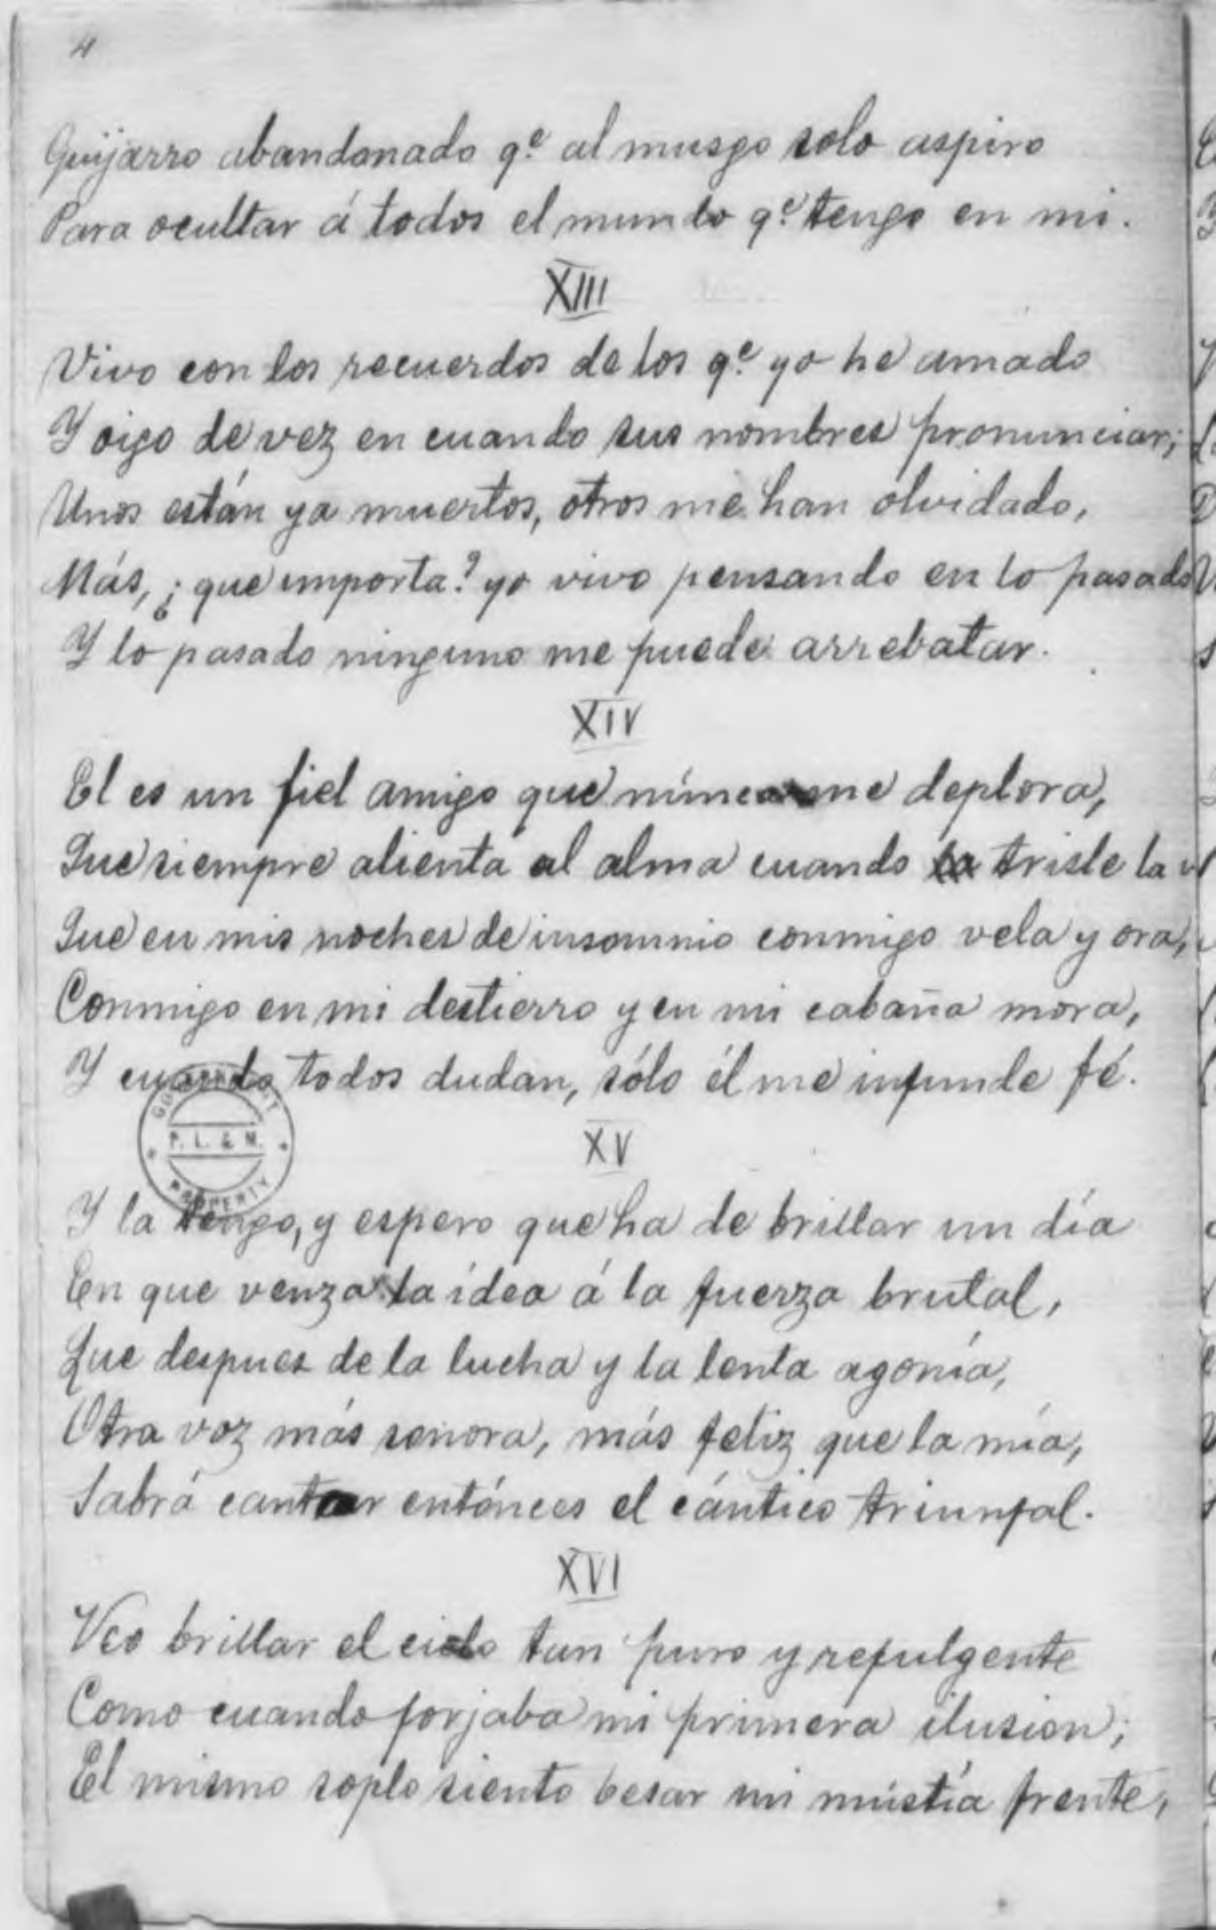 4
Guijarro abandonado q.e al musgo solo aspiro
Para ocultar á todos el mundo q.e tengo en mi.
XIII
Vivo con los recuerdos de los q.e yo he amado
Y oigo de vez en cuando sus nombres pronunciar;
Unos están ya muertos, otros me han olvidado,
Más, ¿que importa? yo vivo pensando en lo pasado
Y lo pasado ninguno me puede arrebatar.
XIV
El es un fiel amigo que núnca me deplora,
Que siempre alienta al alma cuando triste la
Que en mis noches de insomnio conmigo vela y ora,
Conmigo en mi destierro y en mi cabaña mora,
Y cuando todos dudan, sólo él me infunde fé.
GOVERNMENT
P. L. & M.
PROPERTY
XV
Y la tengo, y espero que ha de brillar un día
En que venza la idea á la fuerza brutal,
Que despues de la lucha y la lenta agonía,
Otra voz más sonora, más feliz que la mía,
Sabrá cantar entónces el cántico triunfal.
XVI
Veo brillar el cielo tan puro y refulgente
Como cuando forjaba mi primera ilusion;
El mismo soplo siento besar mi mústia frente,